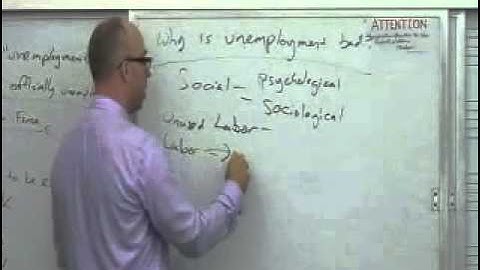 "unemployment
officially unem
Firms
to be
Why is unemployment bad?
Social - Psychological
- Sociological
Unused Labor -
Labor →
ATTENTION